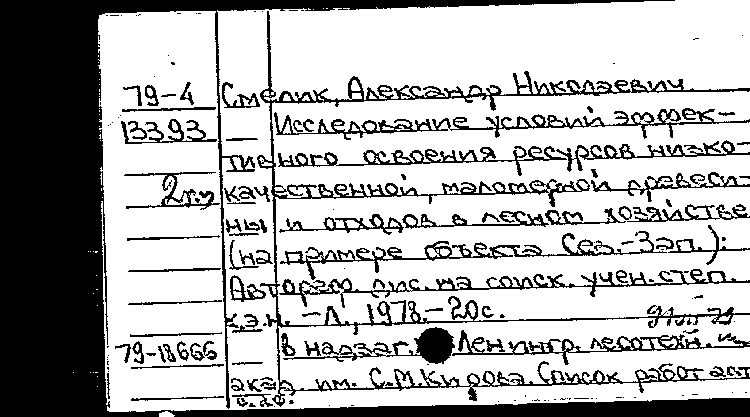 79-4 Смелик, Александр Николаевич
13393 — Исследование условий эффек-
тивного освоения ресурсов низко-
качественной, маломерной древеси-
ны и отходов в лесном хозяйстве
(на примере объекта Сев.-Зап.):
Автореф. дис. на соиск. учен. степ.
к.э.н. - Л., 1978. - 20 с.
79-18666 — В надзаг.: Ленингр. лесотехн.
акад. им. С.М. Кирова. Список работ авт.